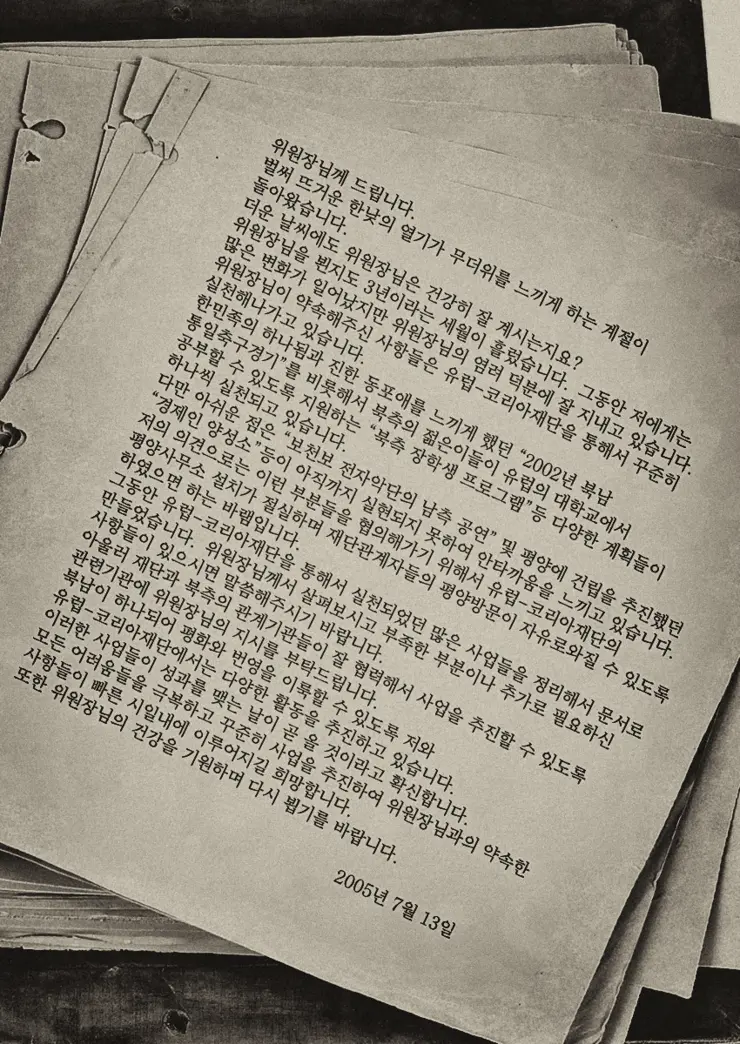 위원장님께 드립니다.
벌써 뜨거운 한낮의 열기가 무더위를 느끼게 하는 계절이
돌아왔습니다.
더운 날씨에도 위원장님은 건강히 잘 계시는지요?
위원장님을 뵌지도 3년이라는 세월이 흘렀습니다. 그동안 저에게는
많은 변화가 일어났지만 위원장님의 염려 덕분에 잘 지내고 있습니다.
위원장님이 약속해주신 사항들은 유럽-코리아재단을 통해서 꾸준히
실천해나가고 있습니다.
한민족의 하나됨과 진한 동포애를 느끼게 했던 “2002년 북남
통일축구경기”를 비롯해서 북측의 젊은이들이 유럽의 대학교에서
공부할 수 있도록 지원하는 “북측 장학생 프로그램”등 다양한 계획들이
하나씩 실천되고 있습니다.
다만 아쉬운 점은 “보천보 전자악단의 남측 공연” 및 평양에 건립을 추진했던
“경제인 양성소”등이 아직까지 실현되지 못하여 안타까움을 느끼고 있습니다.
저의 의견으로는 이런 부분들을 협의해가기 위해서 유럽-코리아재단의
평양사무소 설치가 절실하며 재단관계자들의 평양방문이 자유로와질 수 있도록
하였으면 하는 바램입니다.
그동안 유럽-코리아재단을 통해서 실천되었던 많은 사업들을 정리해서 문서로
만들었습니다. 위원장님께서 살펴보시고 부족한 부분이나 추가로 필요하신
사항들이 있으시면 말씀해주시기 바랍니다.
아울러 재단과 북측의 관계기관들이 잘 협력해서 사업을 추진할 수 있도록
관련기관에 위원장님의 지시를 부탁드립니다.
북남이 하나되어 평화와 번영을 이룩할 수 있도록 저와
유럽-코리아재단에서는 다양한 활동을 추진하고 있습니다.
이러한 사업들이 성과를 맺는 날이 곧 올 것이라고 확신합니다.
모든 어려움들을 극복하고 꾸준히 사업을 추진하여 위원장님과의 약속한
사항들이 빠른 시일내에 이루어지길 희망합니다.
또한 위원장님의 건강을 기원하며 다시 뵙기를 바랍니다.
2005년 7월 13일